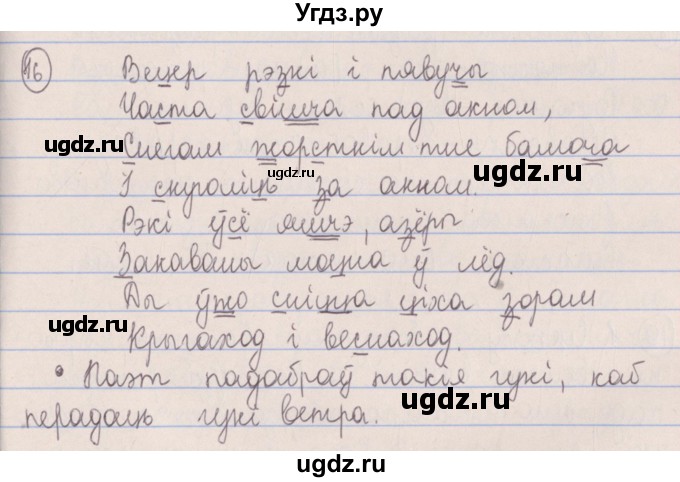 Угдз.ру
16
Вецер рэзкі і пявучы
Часта свішча пад акном,
Снегам жорсткім тне бамоча
І скуголіць за акном.
Рэкі ўсё яшчэ, азёры
Закаваны моцна ў лёд.
Ды ўжо сніцца ціха зорам
Крыгаход і веснаход.
• Паэт падабраў такія гукі, каб
перадаць гукі ветра.
ugdz.ru
ugdz.ru
ugdz.ru
ugdz.ru
ugdz.ru
ugdz.ru
ugdz.ru
ugdz.ru